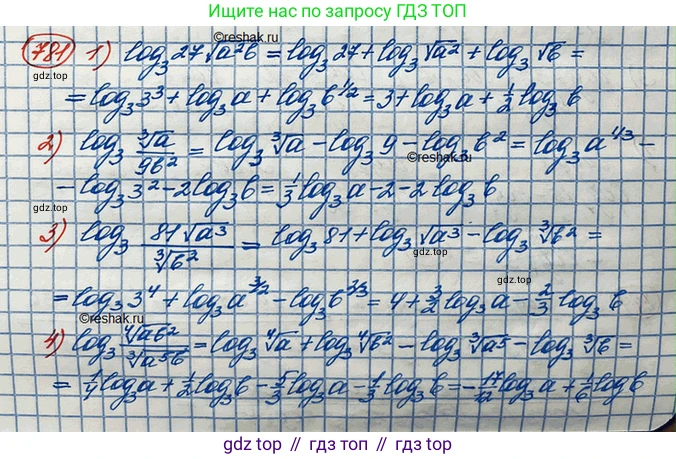 Ищите нас по запросу ГДЗ ТОП
©reshak.ru
781 1) log₃27√a²b = log₃27 + log₃√a² + log₃√b =
gdz.top gdz.top
= log₃3³ + log₃a + log₃b^(1/2) = 3 + log₃a + 1/2 log₃b
2) log₃ ∛a/9b² = log₃∛a − log₃9 − log₃b² = log₃a^(1/3) −
©reshak.ru
− log₃3² − 2log₃b = 1/3 log₃a − 2 − 2log₃b
gdz.top
3) log₃ 81√a³/∛b² = log₃81 + log₃√a³ − log₃∛b² =
gdz.top
= log₃3⁴ + log₃a^(3/2) − log₃b^(2/3) = 4 + 3/2 log₃a − 2/3 log₃b
©reshak.ru
4) log₃ ∜ab²/∛a⁵b = log₃∜a + log₃∜b² − log₃∛a⁵ − log₃∛b =
= 1/4 log₃a + 1/2 log₃b − 5/3 log₃a − 1/3 log₃b = −17/12 log₃a + 1/6 log b
gdz.top // гдз топ // gdz.top